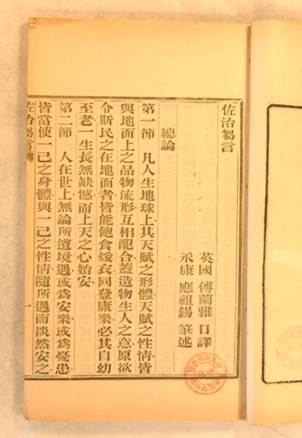 佐治芻言
英國 傅蘭雅 口譯
永康 應祖錫 筆述
總論
第一節 凡人生地球上其天賦之形體天賦之性情皆
與地面上之品物流形互相配合蓋造物生人之意原欲
令斯民之在地面者皆能飽食煖衣同登康樂必其自幼
至老一生長無缺憾而上天之心始安
第二節 人在世上無論所遭境遇或爲安樂或爲憂患
皆當使一己之身體與一己之性情隨所遇而淡然安之
佐治芻言
一